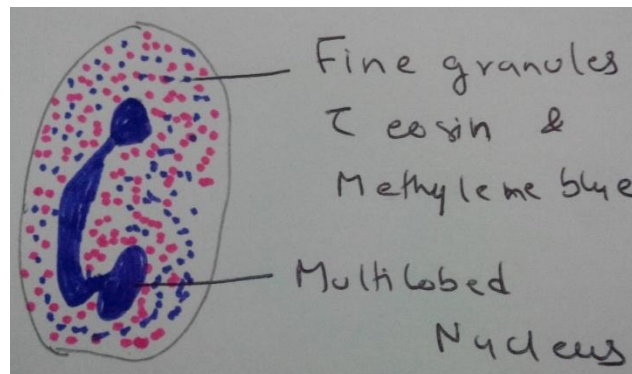 Fine granules
τ eosin &
Methyleme blue
Multilobed
Nucleus